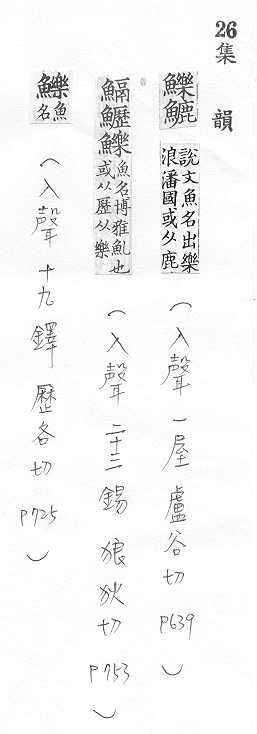 26
集韻
鱳䱚
說文魚名出樂
浪潘國或从鹿
（入聲 一屋 盧谷切 P639）
䰛鱱鱳
魚名博雅魠也
或从歷从樂
（入聲 二十三錫 狼狄切 P753）
鱳
魚名
（入聲 十九鐸 歷各切 P725）